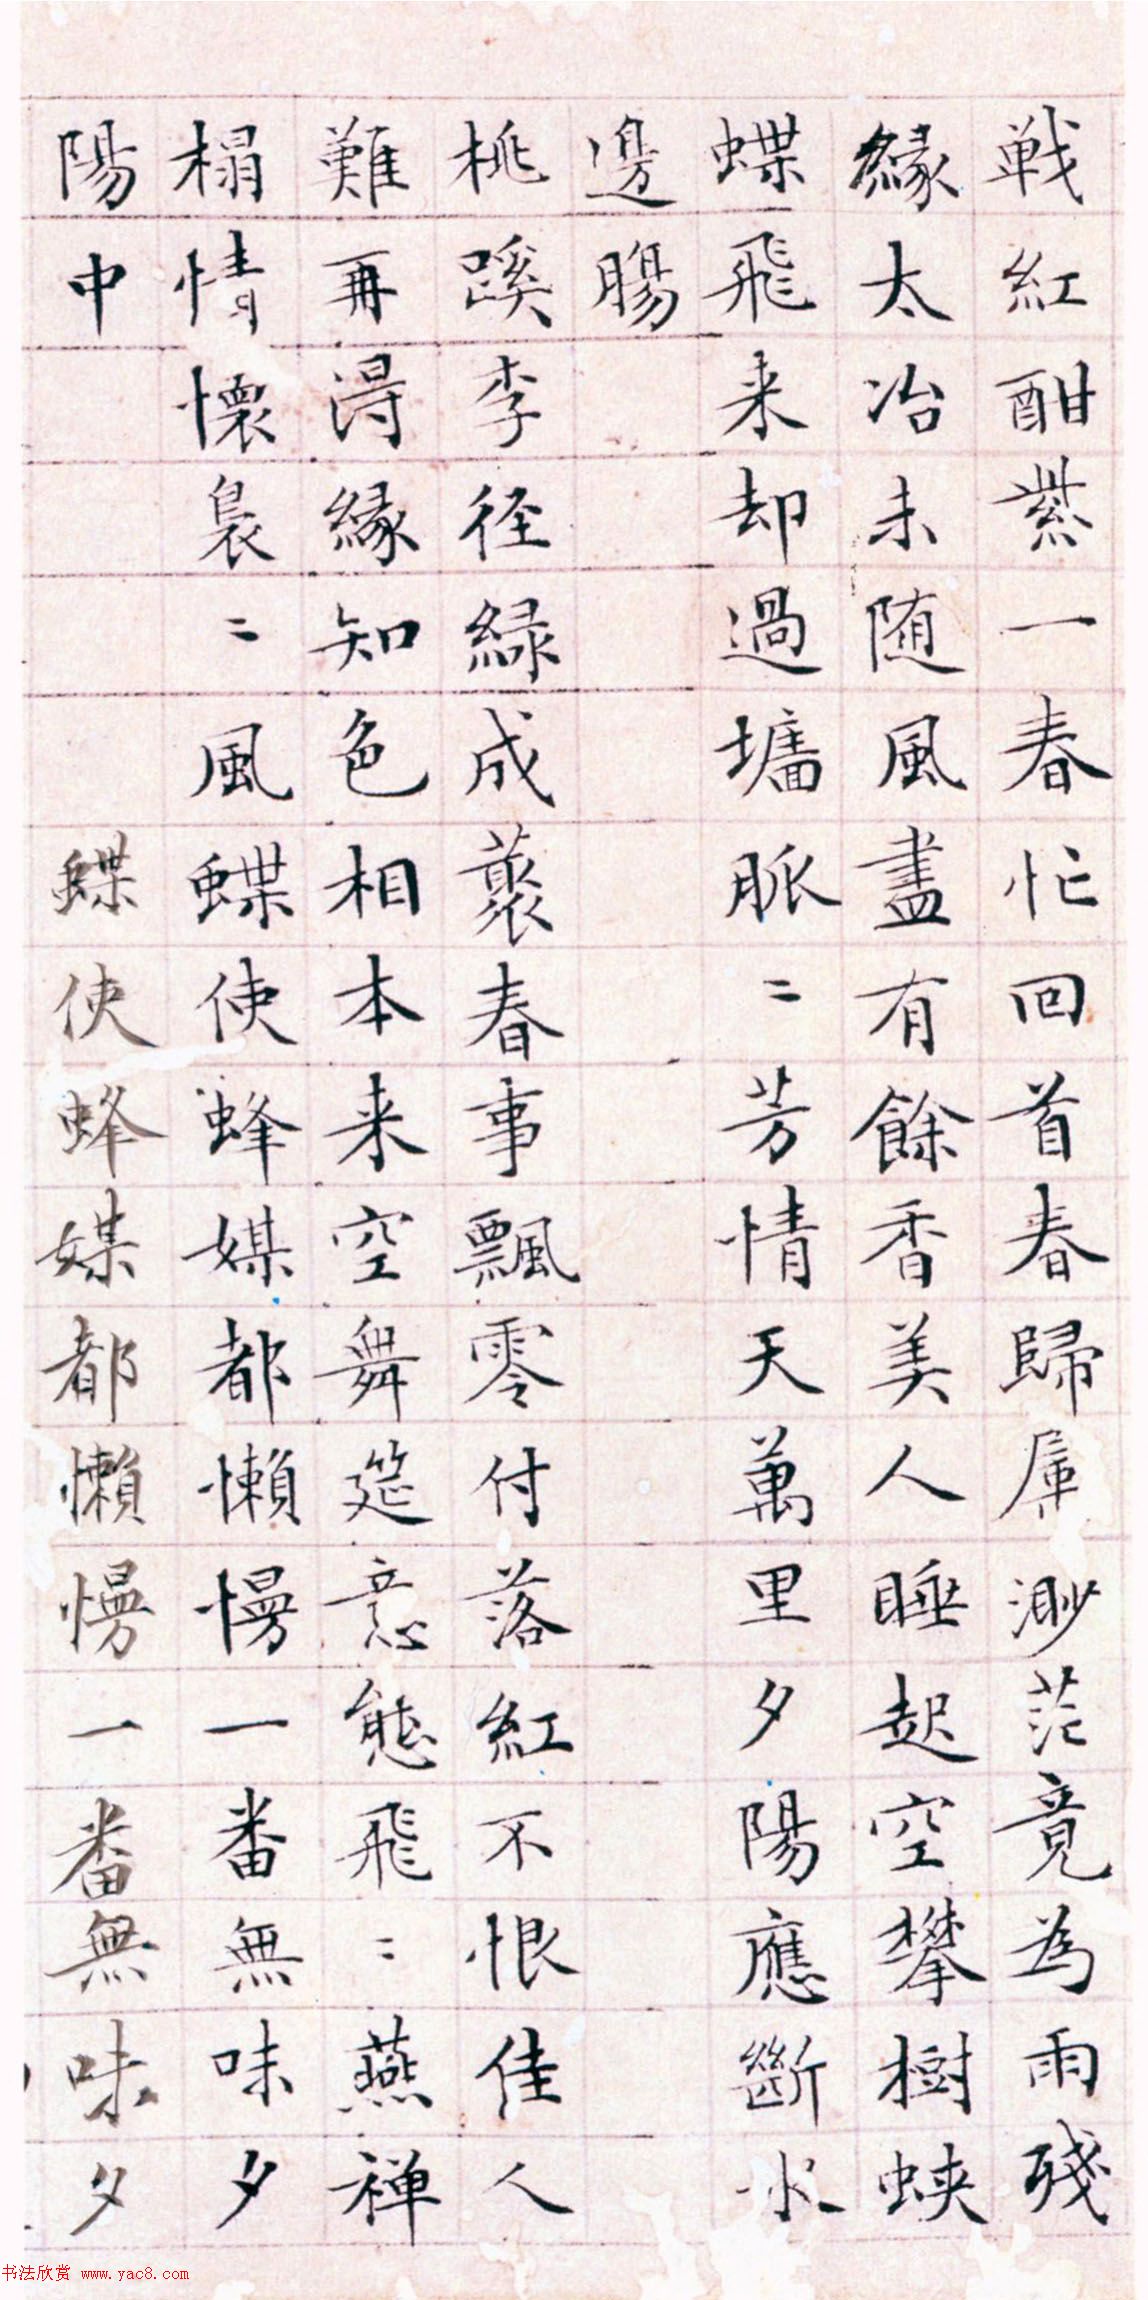 戦紅酣紫一春忙回首春歸屬渺茫竟為雨殘
緣太冶未随風盡有餘香美人睡起空攀樹蛺
蝶飛来却過墻脈〻芳情天萬里夕陽應斷水
邊腸
桃蹊李径緑成藂春事飄零付落紅不恨佳人
難再得緣知色相本来空舞筵意態飛〻燕禅
榻情懷裊〻風蝶使蜂媒都懶慢一番無味夕
陽中 蝶使蜂媒都懶慢一番無味夕
书法欣赏 www.yac8.com